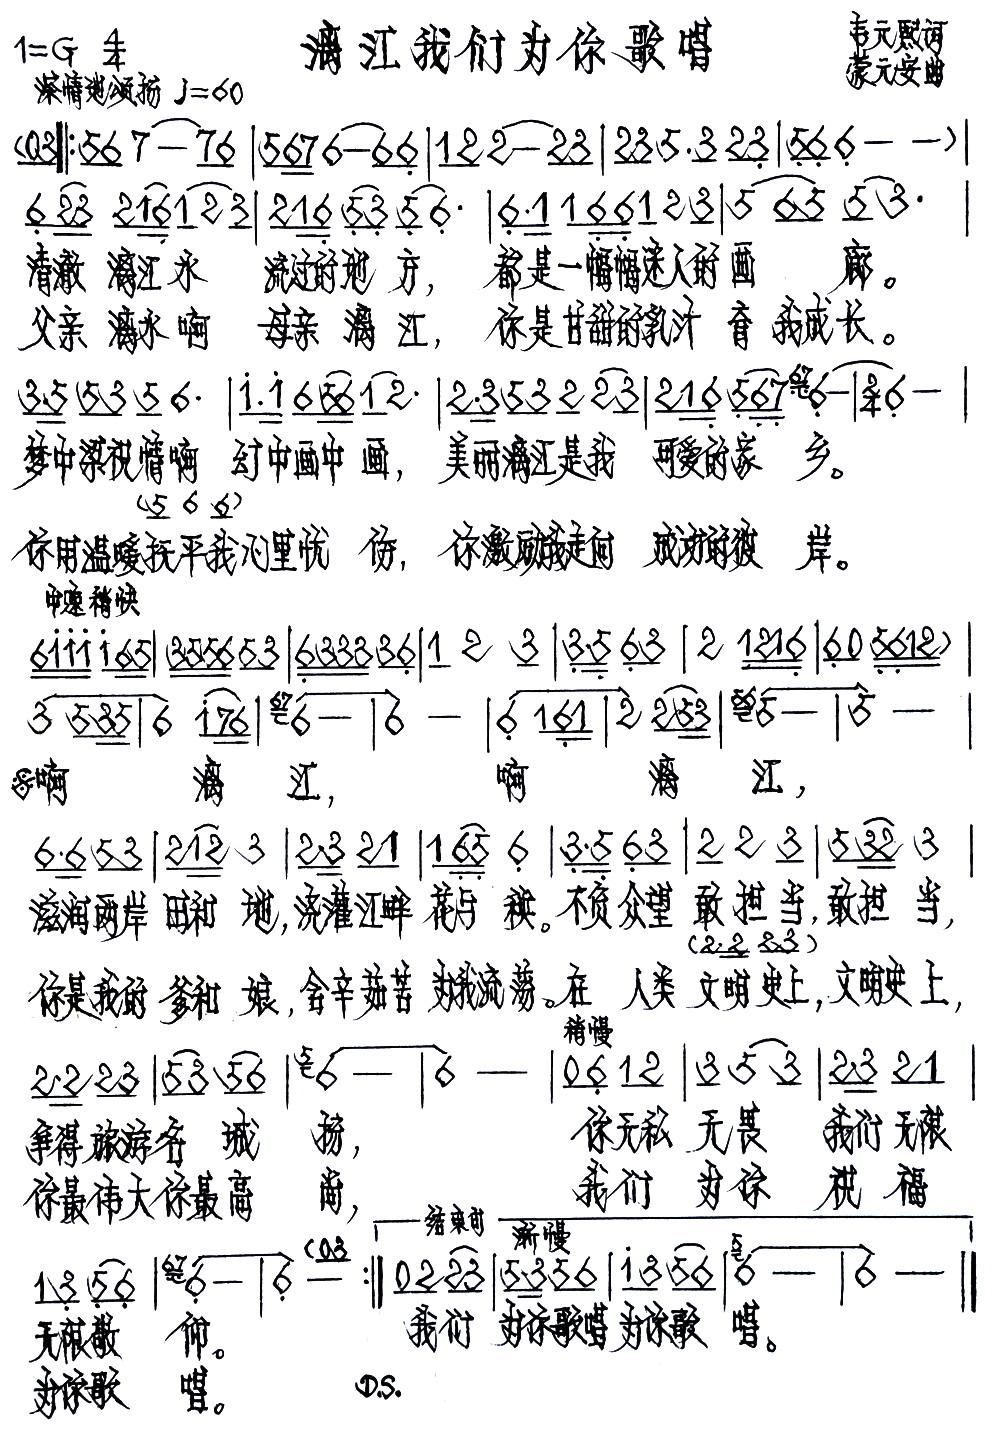 1=G 4/4 漓江我们为你歌唱 韦元熙词
深情地颂扬 ♩=60 蒙元安曲
(03‖:56 7—76|5676—66|122—23|235.323|566——)|
6 23 216123|216 53 56.|6.1 166123|5 65 53.|
清澈 漓江水 流过的地 方, 都是一幅幅迷人的画 廊。
父亲 漓水啊 母亲 漓 江, 你是甘甜的乳汁 育 我成长。
3.5 53 56.|1.1 656 12.|2.3532 23|216 567 67 6—|2/4 6—|
梦中深祝情啊 幻中画中 画, 美丽漓江是我 可爱的家 乡。
(5 6 6)
你用温暖抚平我心里忧 伤, 你激励我走向 成功的彼 岸。
中速稍快
6111 165|3556 53|6333 36|1 2 3|3.5 63|2 1216|60 5612)|
3 535|6 176|67 6—|6—|6 161|2 253|56 5—|5—|
啊 漓 江, 啊 漓 江,
6.6 53|212 3|2.3 21|165 6|3.5 63|2 2 3|532 3|
滋润两岸 田和 地,浇灌江畔 花与 秧。不负众望 敢 担 当,敢担 当,
(2.2 23)
你是我的 爹和 娘,含辛茹苦 为我流荡。在 人类 文明史上,文明史上,
稍慢
2.2 23|53 56|5 6—|6—|06 12|3 5 3|2.3 21|
争得旅游名 城 扬, 你无私 无畏 我们无限
你最伟大你最高 尚, 我们 为你 祝 福
结束句 渐慢
13 56|67 6—|6—(03:‖02 23|53 56|13 56|5 6—|6—‖
无限敬 仰。 我们 为你歌唱为你歌 唱。
为你歌 唱。 D.S.